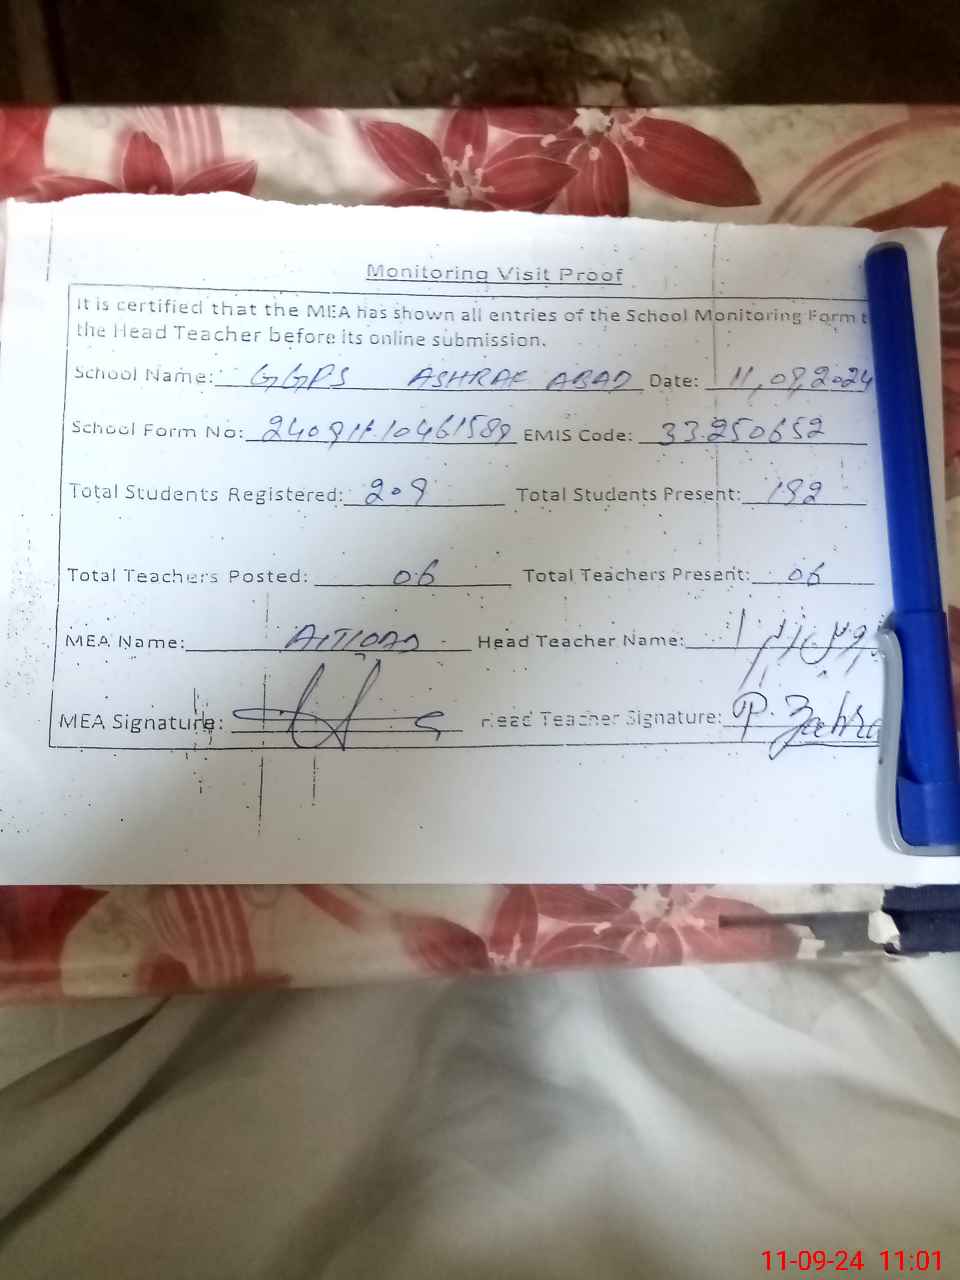 Monitoring Visit Proof
It is certified that the MEA has shown all entries of the School Monitoring Form t
the Head Teacher before its online submission.
School Name: GGPS ASHRAF ABAD Date: 11,09,2024
School Form No: EMIS Code: 33250652
Total Students Registered: 209 Total Students Present: 192
Total Teachers Posted: 06 Total Teachers Present: 06
MEA Name: Head Teacher Name:
MEA Signature: Head Teacher Signature: P. Zahra
11-09-24 11:01